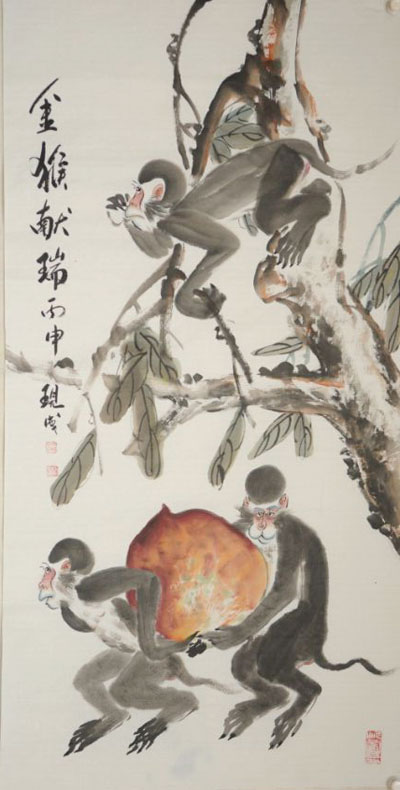 金猴献瑞丙申
现成